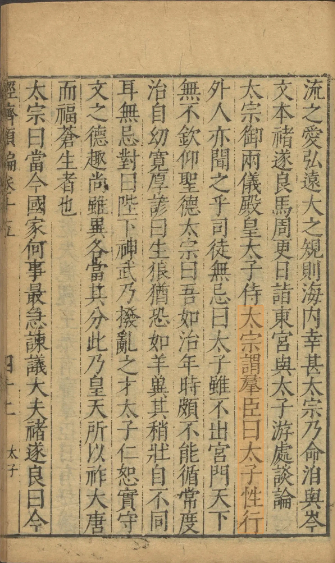 流之愛弘遠大之規則海内幸甚太宗乃命洎與岑
文本褚遂良馬周更日詣東宫與太子游處談論
太宗御兩儀殿皇太子侍太宗謂羣臣曰太子性行
外人亦聞之乎司徒無忌曰太子雖不出宫門天下
無不欽仰聖德太宗曰吾如治年時頗不能循常度
治自幼寬厚諺曰生狼猶恐如羊兾其稍壯自不同
耳無忌對曰陛下神武乃撥亂之才太子仁恕實守
文之德趣尚雖異各當其分此乃皇天所以祚大唐
而福蒼生者也
太宗曰當今國家何事最急諫議大夫褚遂良曰今
經濟類編卷十五
四十二
太子